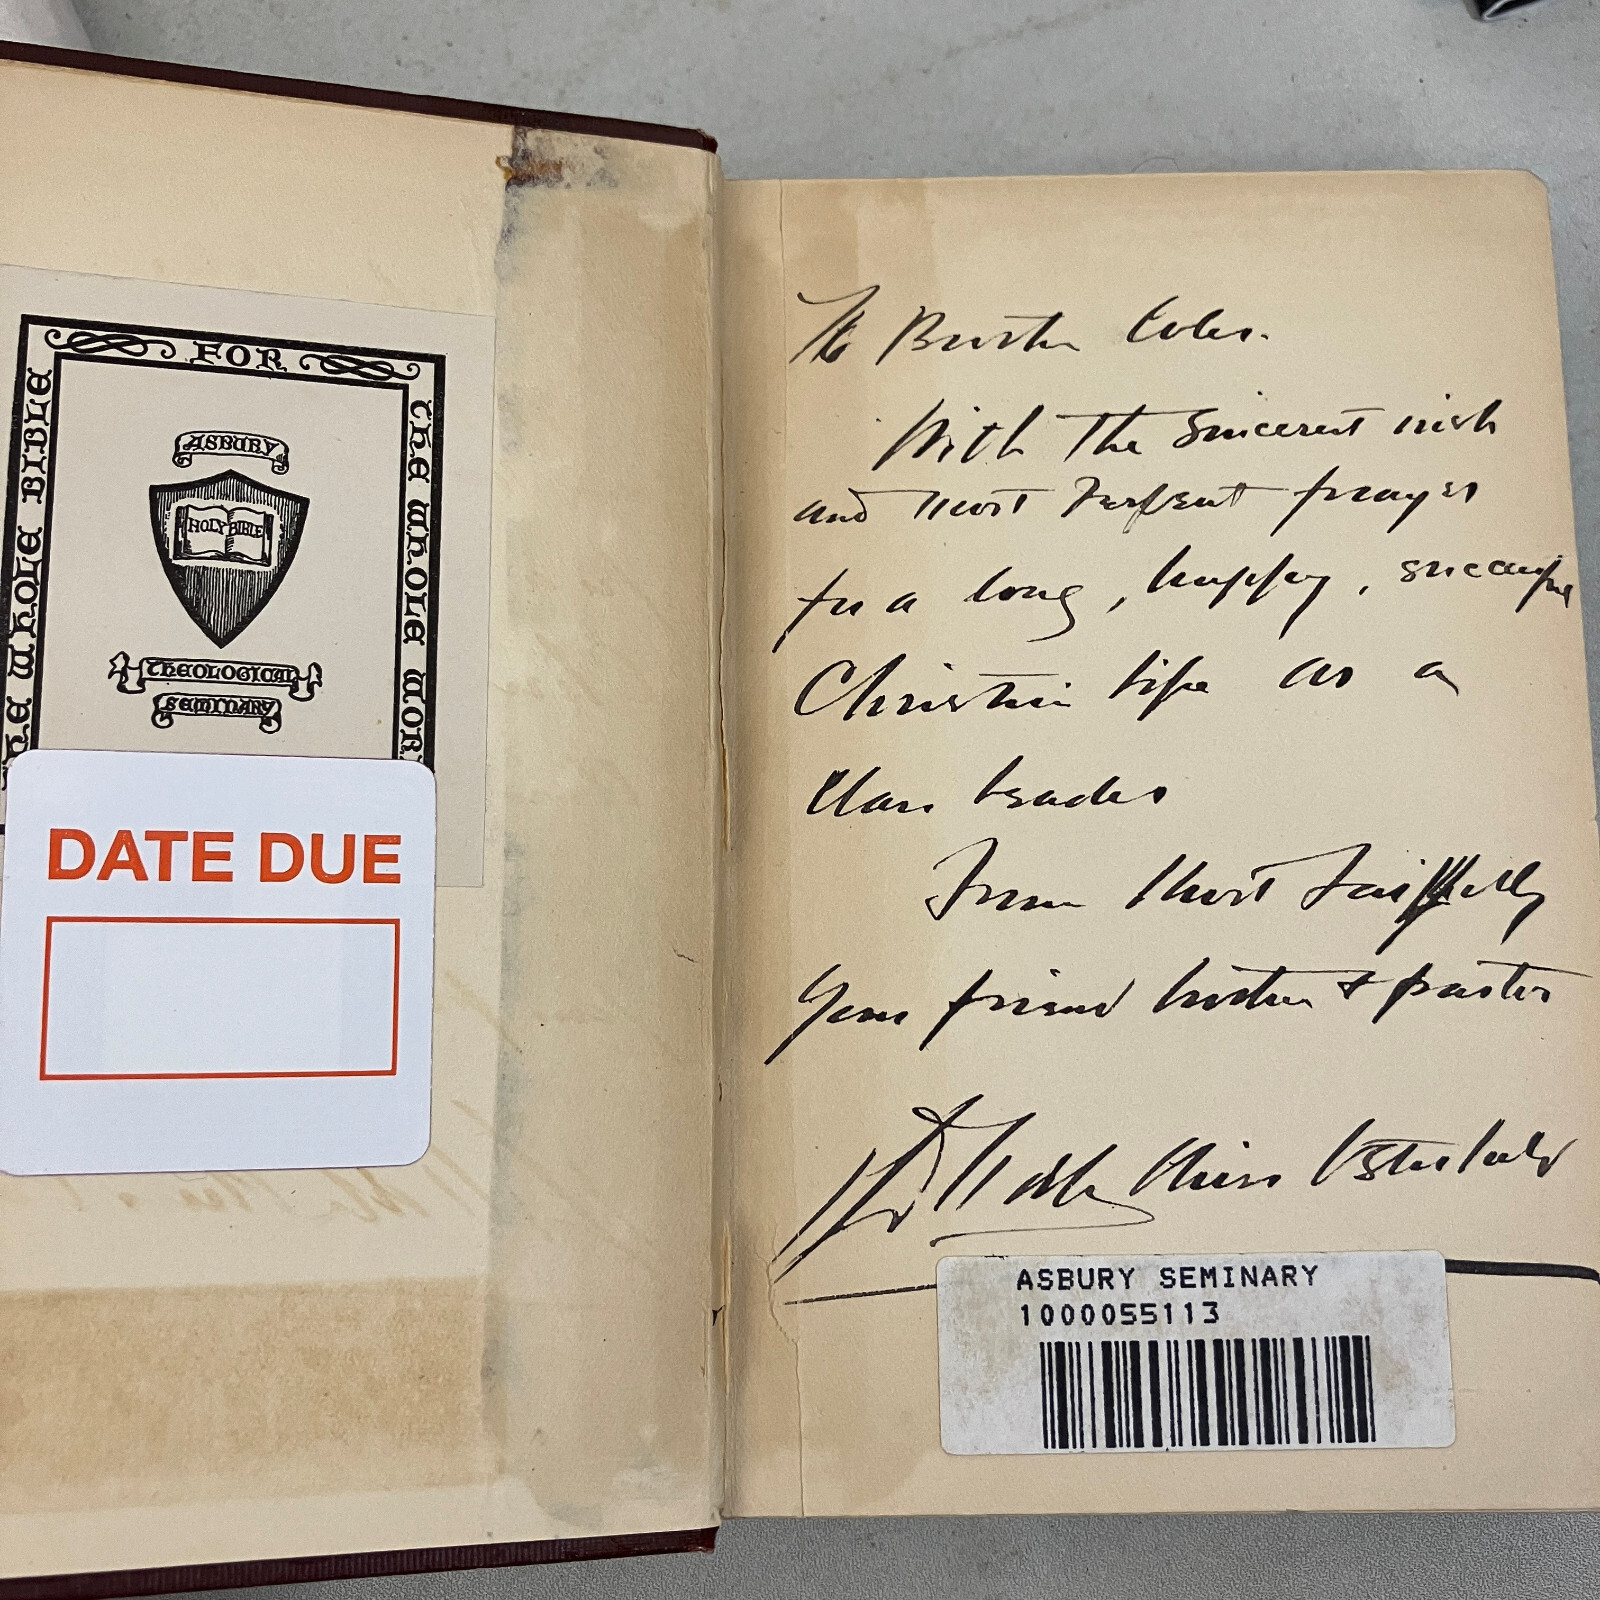 FOR
THE WHOLE BIBLE
THE WHOLE WOR
ASBURY
HOLY BIBLE
THEOLOGICAL
SEMINARY
DATE DUE
To Brother Coles.
With the sincerest wish
and most fervent prayer
for a long, happy, successful
Christian life as a
Class leader
From Most Faithfully
Your friend brother & pastor
ASBURY SEMINARY
1000055113